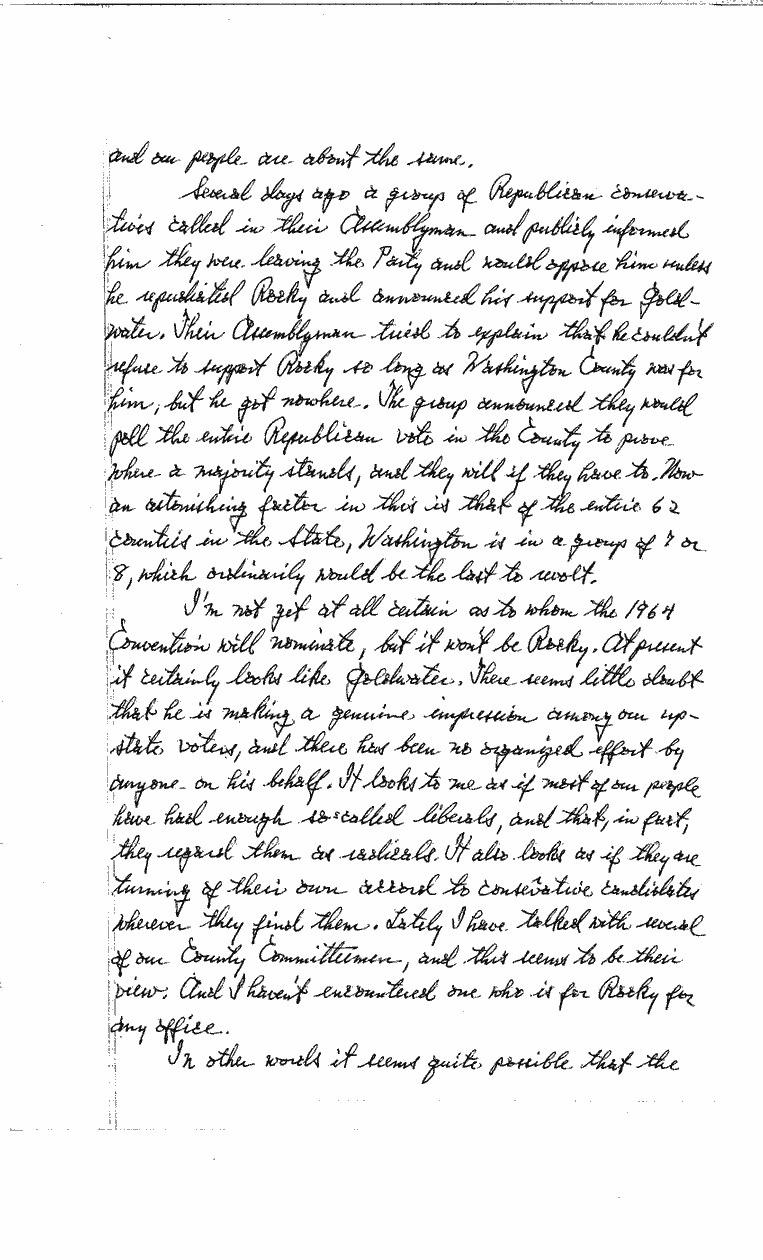 and our people are about the same.
Several days ago a group of Republican conserva-
tives called in their Assemblyman and publicly informed
him they were leaving the Party and would oppose him unless
he repudiated Rocky and announced his support for Gold-
water. Their Assemblyman tried to explain that he couldn't
refuse to support Rocky so long as Washington County was for
him, but he got nowhere. The group announced they would
poll the entire Republican vote in the County to prove
where a majority stands, and they will if they have to. Now
an astonishing factor in this is that of the entire 62
counties in the State, Washington is in a group of 7 or
8, which ordinarily would be the last to revolt.
I'm not yet at all certain as to whom the 1964
Convention will nominate, but it won't be Rocky. At present
it certainly looks like Goldwater. There seems little doubt
that he is making a genuine impression among our up-
state voters, and there has been no organized effort by
anyone on his behalf. It looks to me as if most of our people
have had enough so-called liberals, and that, in fact,
they regard them as radicals. It also looks as if they are
turning of their own accord to conservative candidates
wherever they find them. Lately I have talked with several
of our County Committeemen, and this seems to be their
view. And I haven't encountered one who is for Rocky for
any office.
In other words it seems quite possible that the